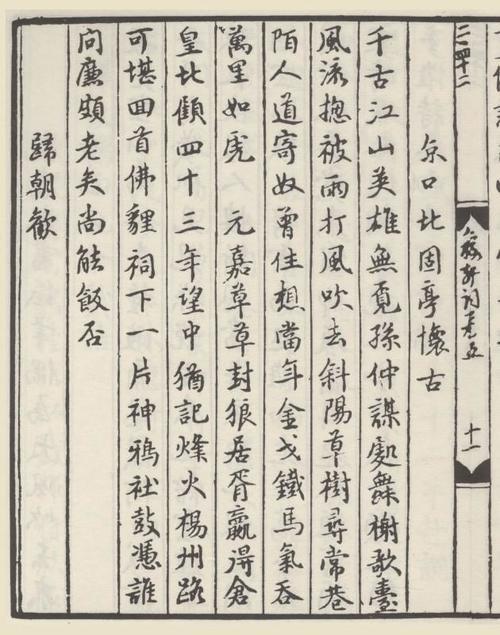 稼軒詞卷五
十一
京口北固亭懷古
千古江山英雄無覓孫仲謀處舞榭歌臺
風流摠被雨打風吹去斜陽草樹尋常巷
陌人道寄奴曾住想當年金戈鐵馬氣吞
萬里如虎　元嘉草草封狼居胥贏得倉
皇北顧四十三年望中猶記烽火楊州路
可堪回首佛貍祠下一片神鴉社鼓憑誰
問廉頗老矣尚能飯否
歸朝歡